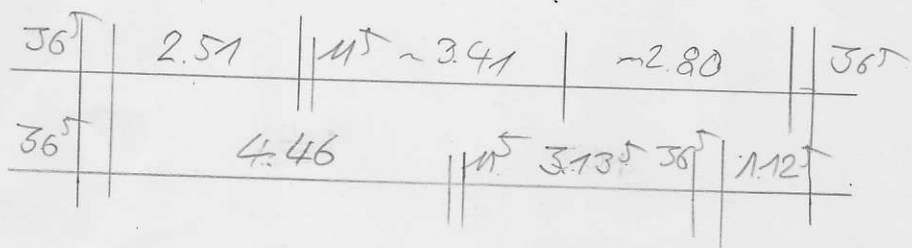 36⁵ 2.51 11⁵ ~3.41 ~2.80 36⁵
36⁵ 4.46 11⁵ 3.13⁵ 36⁵ 1.12⁵